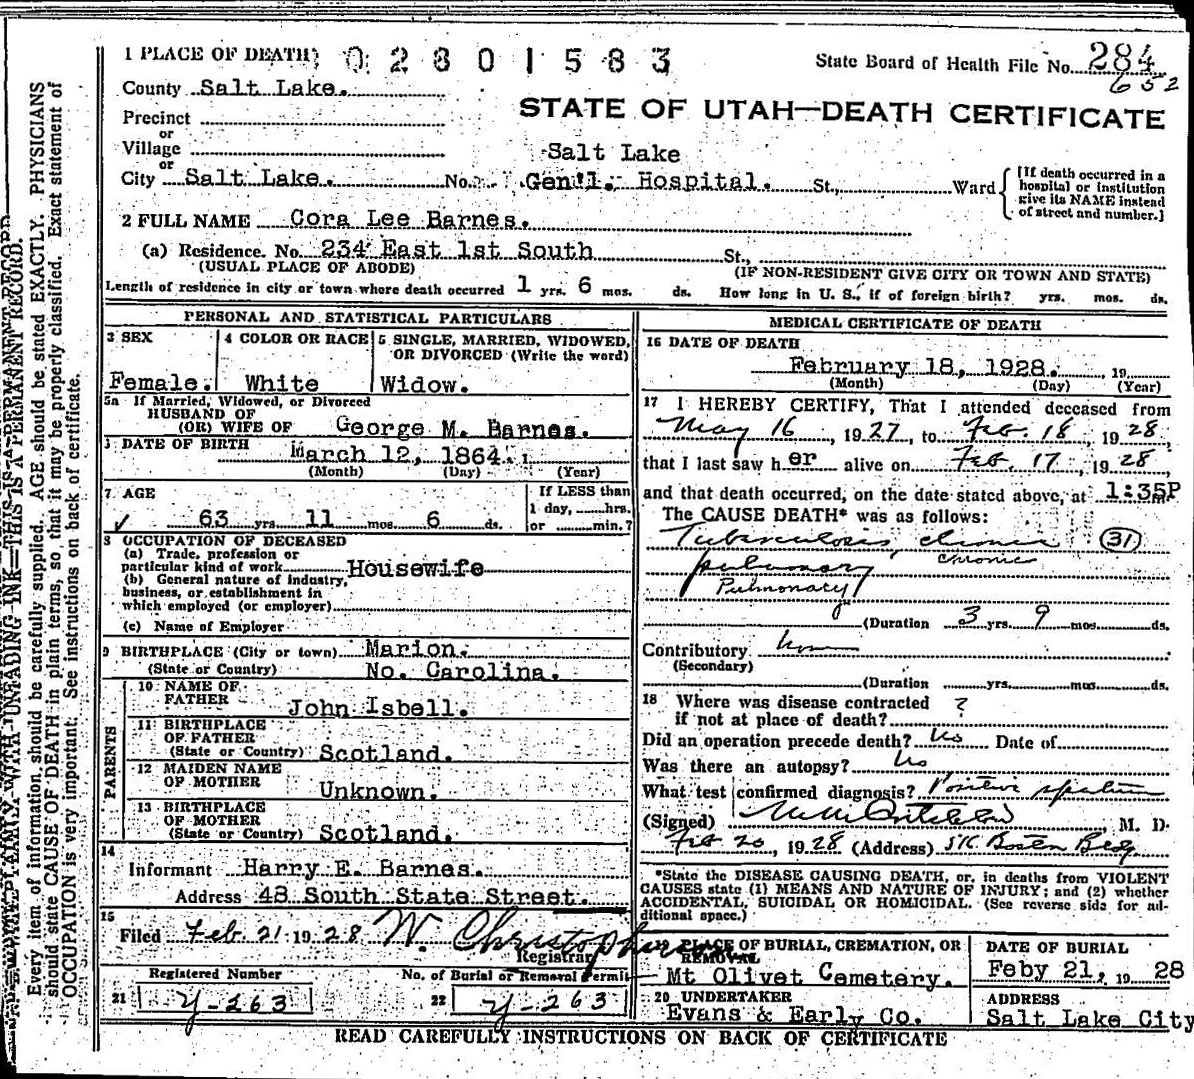 1 PLACE OF DEATH 0 2 8 0 1 5 8 3
State Board of Health File No. 284
652
County Salt Lake.
STATE OF UTAH—DEATH CERTIFICATE
Precinct
or
Village
or
City Salt Lake. No. Salt Lake Gen'l. Hospital. St., Ward
[If death occurred in a hospital or institution give its NAME instead of street and number.]
2 FULL NAME Cora Lee Barnes.
(a) Residence. No. 234 East 1st South St.,
(USUAL PLACE OF ABODE) (IF NON-RESIDENT GIVE CITY OR TOWN AND STATE)
Length of residence in city or town where death occurred 1 yrs. 6 mos. ds. How long in U. S., if of foreign birth? yrs. mos. ds.
PERSONAL AND STATISTICAL PARTICULARS
3 SEX
Female.
4 COLOR OR RACE
White
5 SINGLE, MARRIED, WIDOWED, OR DIVORCED (Write the word)
Widow.
5a If Married, Widowed, or Divorced
HUSBAND OF
(OR) WIFE OF George M. Barnes.
DATE OF BIRTH March 12, 1864.
(Month) (Day) (Year)
7 AGE
63 yrs. 11 mos. 6 ds.
If LESS than
1 day, hrs.
or min.?
8 OCCUPATION OF DECEASED
(a) Trade, profession or
particular kind of work Housewife
(b) General nature of industry,
business, or establishment in
which employed (or employer)
(c) Name of Employer
9 BIRTHPLACE (City or town) Marion.
(State or Country) No. Carolina.
PARENTS
10 NAME OF
FATHER John Isbell.
11 BIRTHPLACE
OF FATHER
(State or Country) Scotland.
12 MAIDEN NAME
OF MOTHER Unknown.
13 BIRTHPLACE
OF MOTHER
(State or Country) Scotland.
14
Informant Harry E. Barnes.
Address 48 South State Street.
15
Filed Feb. 21 1928 W. Christopherson
Registrar
Registered Number
21 Y-263
No. of Burial or Removal Permit
22 Y-263
MEDICAL CERTIFICATE OF DEATH
16 DATE OF DEATH
February 18, 1928. , 19
(Month) (Day) (Year)
17 I HEREBY CERTIFY, That I attended deceased from
May 16, 1927, to Feb. 18, 1928,
that I last saw her alive on Feb. 17, 1928,
and that death occurred, on the date stated above, at 1:35P
The CAUSE DEATH* was as follows:
Tuberculosis, chronic (31)
chronic
pulmonary
Pulmonary
(Duration 3 yrs. 9 mos. ds.
Contributory None
(Secondary)
(Duration yrs. mos. ds.
18 Where was disease contracted
if not at place of death? ?
Did an operation precede death? No Date of
Was there an autopsy? No
What test confirmed diagnosis? Positive sputum
(Signed) M. D.
Feb 20, 1928 (Address) 516 Boston Bldg
*State the DISEASE CAUSING DEATH, or, in deaths from VIOLENT
CAUSES state (1) MEANS AND NATURE OF INJURY; and (2) whether
ACCIDENTAL, SUICIDAL OR HOMICIDAL. (See reverse side for ad-
ditional space.)
19 PLACE OF BURIAL, CREMATION, OR
REMOVAL
Mt Olivet Cemetery.
DATE OF BURIAL
Feby 21, 1928
20 UNDERTAKER
Evans & Early Co.
ADDRESS
Salt Lake City
READ CAREFULLY INSTRUCTIONS ON BACK OF CERTIFICATE
WRITE PLAINLY WITH UNFADING INK—THIS IS A PERMANENT RECORD.
Every item of information should be carefully supplied. AGE should be stated EXACTLY. PHYSICIANS
should state CAUSE OF DEATH in plain terms, so that it may be properly classified. Exact statement of
OCCUPATION is very important. See instructions on back of certificate.